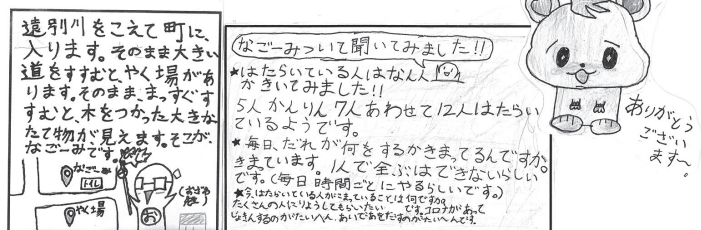 遠別川をこえて町に、
入ります。そのまま大きい
道をすすむと、やく場があ
ります。そのまま、まっすぐす
すむと、木をつかった大きな
たて物が見えます。そこが、
なごーみです。
なごーみ
トイレ
やく場
お
なごーみついて聞いてみました!!
★はたらいている人はなん人
かきいてみました!!
5人かんりん7人あわせて12人はたらい
ているようです。
★毎日、だれが何をするかきまってるんですか。
きまています。1人で全ぶはできないらしい
です。(毎日時間ごとにやるらしいです。)
★今はたらいている人がこまっていることは何ですか。
たくさんの人にりようしてもらいたい
です。コロナがあって
ありがとう
ござい
ます〜。